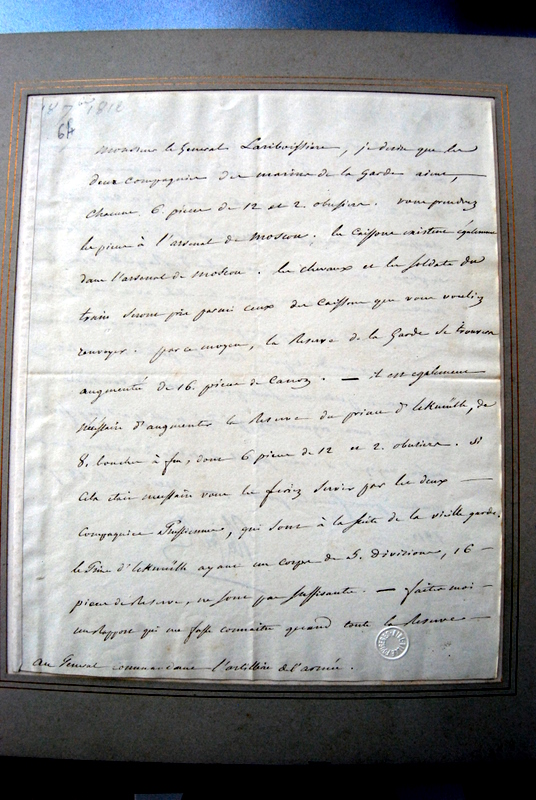 18 7bre 1812
64
Monsieur le General Lariboissiere, je desire que les
deux compagnies de marins de la Garde aient,
chacune 6. pieces de 12 et 2. obusiers. vous prendrez
les pieces à l'arsenal de Moscou. les caissons existent également
dans l'arsenal de Moscou. les chevaux et les soldats du
train seront pris parmi ceux des caissons que vous vouliez
renvoyer. par ce moyen, la Reserve de la Garde se trouvera
augmenté de 16. pieces de canon. — il est également
necessaire d'augmenter la Reserve du prince d'Ekmühl, de
8. bouches à feu, dont 6 pieces de 12 et 2. obusiers. si
cela etait necessaire vous les feriez servir par les deux —
compagnies Prussiennes, qui sont à la suite de la vieille garde.
le Prince d'Ekmühl ayant un corps de 5. divisions, 16 —
pieces de Reserve, ne sont pas suffisantes. — faites moi —
un rapport qui me fasse connaitre quand toute la Reserve —
au General commandant l'artillerie de l'armée.